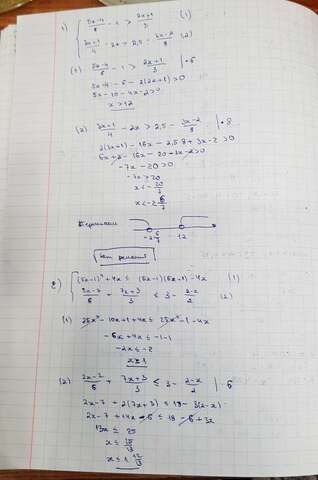 1) { (5x-4)/6 - 1 > (2x+1)/3 (1)
(3x+1)/4 - 2x > 2,5 - (3x-2)/8 (2)
(1) (5x-4)/6 - 1 > (2x+1)/3 | · 6
5x-4-6-2(2x+1)>0
5x-10-4x-2>0
x>12
(2) (3x+1)/4 - 2x > 2,5 - (3x-2)/8 | · 8
2(3x+1) - 16x - 2,5·8 + 3x-2 >0
6x+2-16x-20+3x-2>0
-7x-20>0
-7x>20
x<-20/7
x<-2 6/7
-2 6/7 12
2) { (5x-1)² + 4x ≤ (5x-1)(5x+1) - 4x (1)
(2x-7)/6 + (7x+3)/3 ≤ 3 - (2-x)/2 (2)
(1) 25x² - 10x+1+4x ≤ 25x² - 1 - 4x
-6x+4x ≤ -1-1
-2x ≤ -2
x≥1
(2) (2x-7)/6 + (7x+3)/3 ≤ 3 - (2-x)/2 | · 6
2x-7 + 2(7x+3) ≤ 18 - 3(2-x)
2x-7 + 14x + 6 ≤ 18 - 6 + 3x
13x ≤
x ≤
x ≤ 1